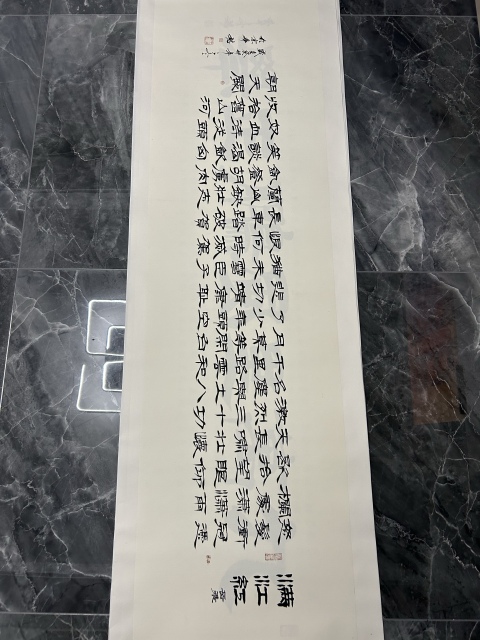 滿江紅
岳飛
怒髮衝冠憑
欄處瀟瀟雨
歇抬望眼仰
天長嘯壯懷
激烈三十功
名塵與土八
千里路雲和
月莫等閒白
了少年頭空
悲切靖康恥
猶未雪臣子
恨何時滅駕
長車踏破賀
蘭山缺壯志
飢餐胡虜肉
笑談渴飲匈
奴血待從頭
收拾舊山河
朝天闕